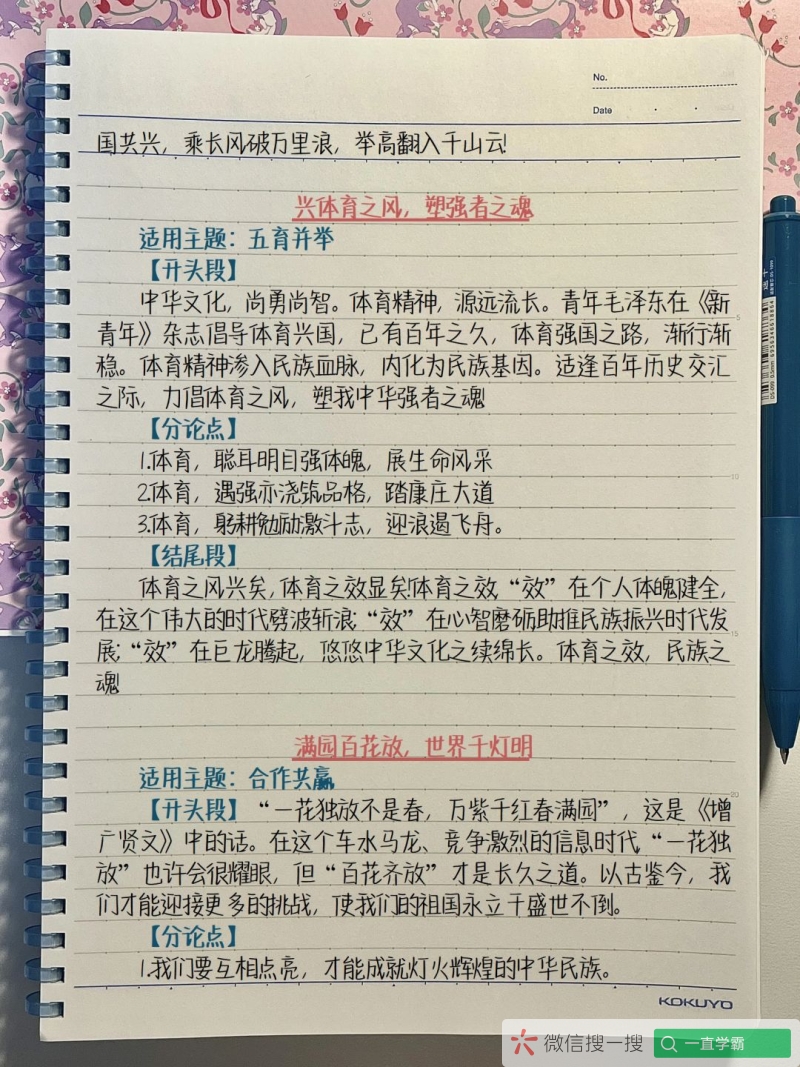 No.
Date
国共兴，乘长风破万里浪，举高翻入千山云!
兴体育之风，塑强者之魂
适用主题：五育并举
【开头段】
中华文化，尚勇尚智。体育精神，源远流长。青年毛泽东在《新
青年》杂志倡导体育兴国，已有百年之久，体育强国之路，渐行渐
稳。体育精神渗入民族血脉，内化为民族基因。适逢百年历史交汇
之际，力倡体育之风，塑我中华强者之魂!
【分论点】
1.体育，聪耳明目强体魄，展生命风采
2.体育，遇强亦浇筑品格，踏康庄大道
3.体育，躬耕勉励激斗志，迎浪遏飞舟。
【结尾段】
体育之风兴矣，体育之效显矣!体育之效，“效”在个人体魄健全，
在这个伟大的时代劈波斩浪；“效”在心智磨砺，助推民族振兴时代发
展；“效”在巨龙腾起，悠悠中华文化之续绵长。体育之效，民族之
魂!
满园百花放，世界千灯明
适用主题：合作共赢
【开头段】“一花独放不是春，万紫千红春满园”，这是《增
广贤文》中的话。在这个车水马龙、竞争激烈的信息时代“一花独
放”也许会很耀眼，但“百花齐放”才是长久之道。以古鉴今，我
们才能迎接更多的挑战，使我们的祖国永立千盛世不倒。
【分论点】
1.我们要互相点亮，才能成就灯火辉煌的中华民族。
5
10
15
20
KOKUYO
微信搜一搜
一直学霸